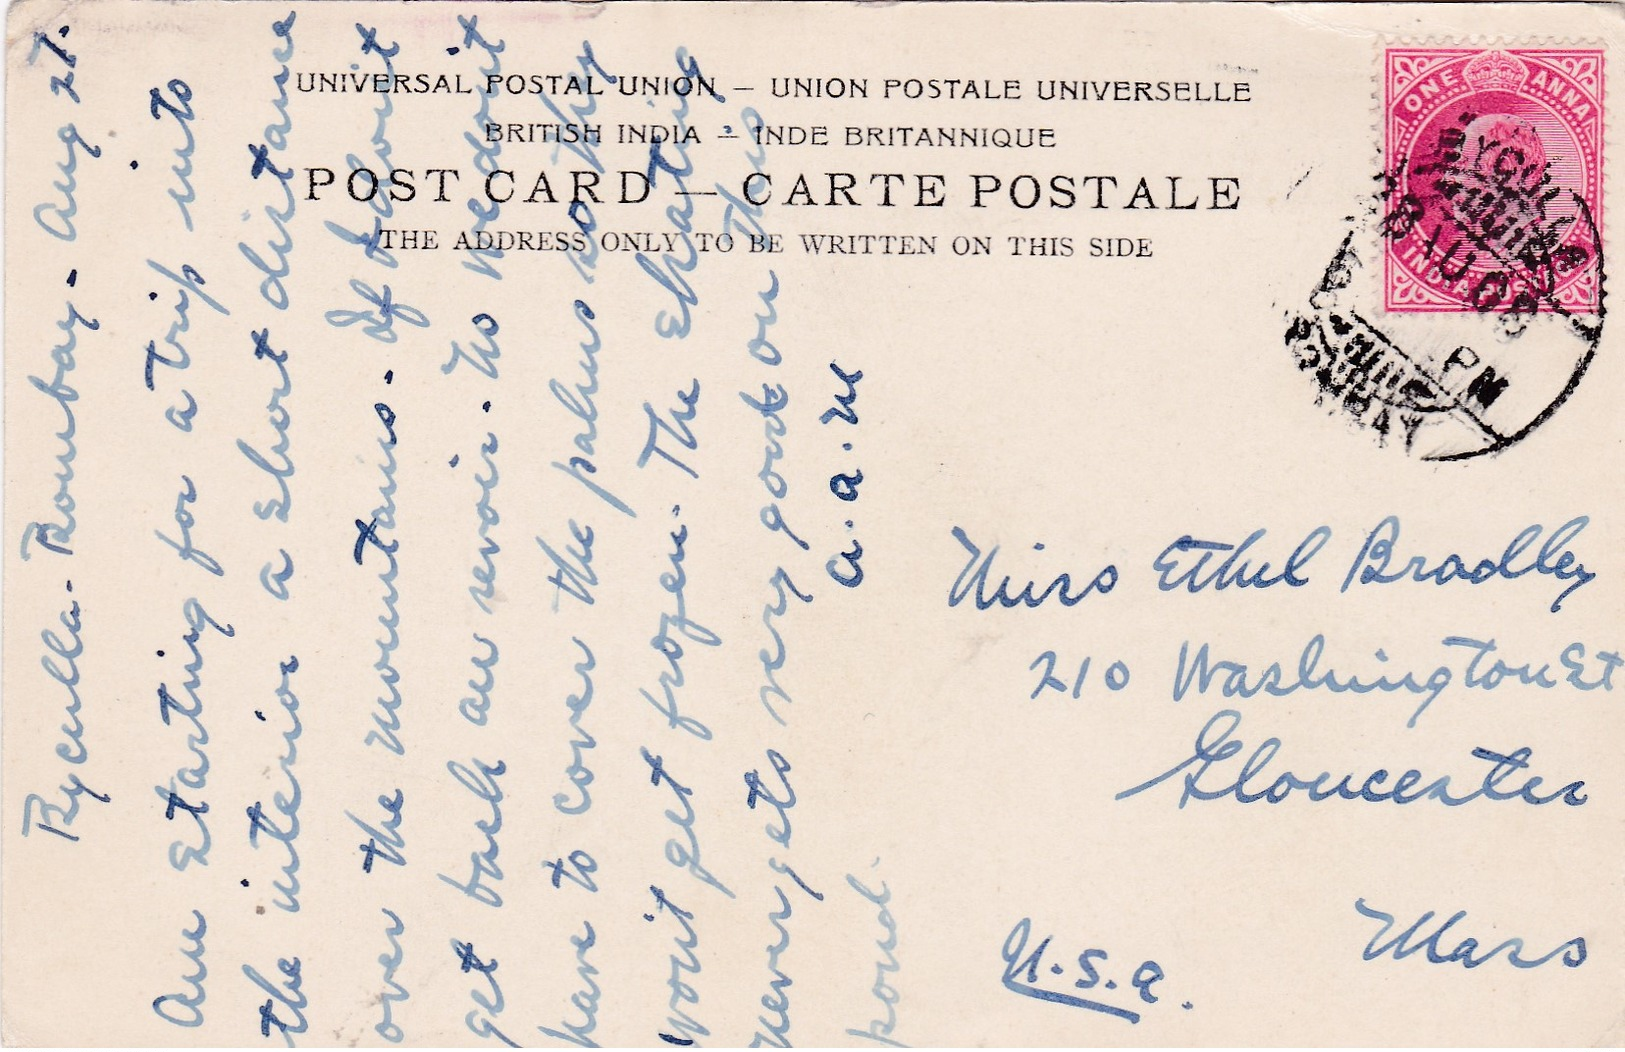 UNIVERSAL POSTAL UNION — UNION POSTALE UNIVERSELLE
BRITISH INDIA — INDE BRITANNIQUE
POST CARD — CARTE POSTALE
THE ADDRESS ONLY TO BE WRITTEN ON THIS SIDE
ONE ANNA
BYCULLA
PM
BOMBAY
Byculla - Bombay - Aug 27.
Am starting for a trip into
the interior a short distance
over the mountains. If I dont
get back au revoir. No we dont
have to cover the palms so they
wont get frozen. The skating
never gets very good on this
pond.
a. a. m
Miss Ethel Bradley
210 Washington St
Gloucester
Mass
U.S.A.